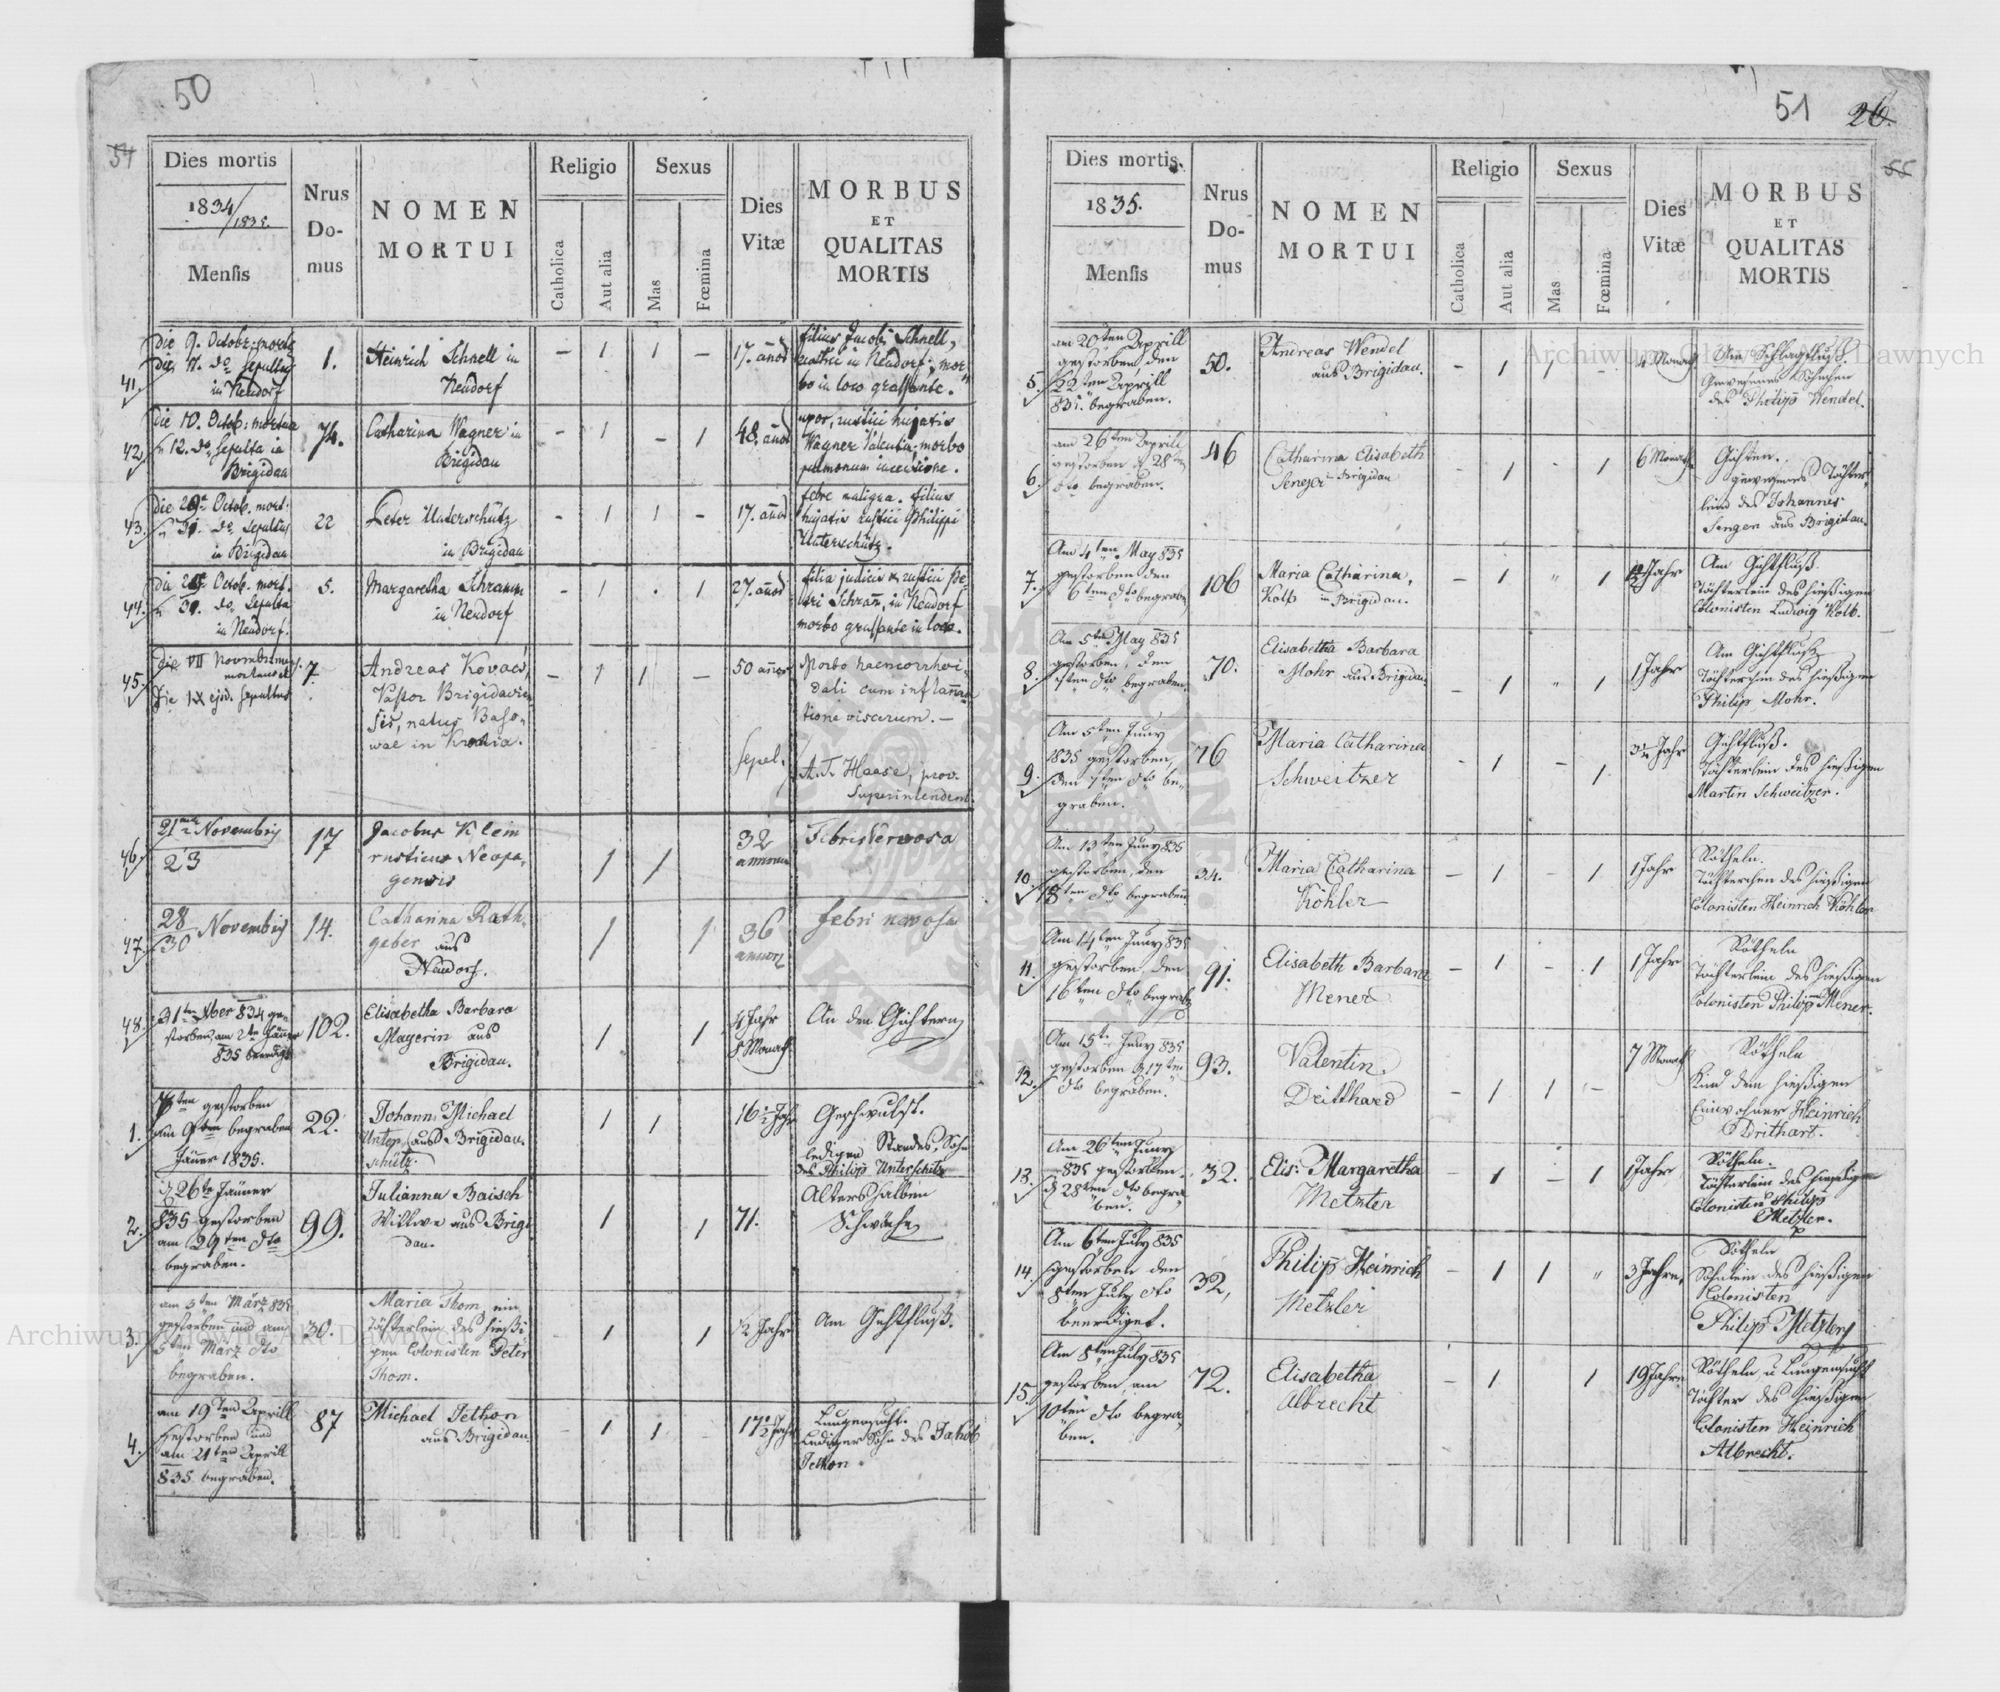 50
54
Dies mortis
1834/1835.
Mensis
Nrus
Do-
mus
NOMEN
MORTUI
Religio
Catholica
Aut alia
Sexus
Mas
Fœmina
Dies
Vitæ
MORBUS
ET
QUALITAS
MORTIS
41.
die 9. Octobr: mortu
die 11. do Sepultus
in Neudorf
1.
Heinrich Schnell in
Neudorf
– 1 1 –
17. anor
filius Jacobi Schnell,
in Neudorf, mor
bo in loco grassante.
42.
die 10. Octob: mortua
12. do Sepulta in
Brigidau
74.
Catharina Wagner in
Brigidau
– 1 – 1
48. anor
uxor, rustici hujatis
Wagner Valentin, morbo
pulmonum
43.
Octob. mort:
31. do Sepultus
in Brigidau
22
Peter Unterschütz
in Brigidau
– 1 1 –
17. anor
febre maligna. filius
hujatis rustici Philippi
Unterschütz.
44.
Octob. mort.
31. do, Sepulta
in Neudorf.
5.
Margaretha Schramm
in Neudorf
– 1 . 1
27. anor
filia judicis & rustici Pe-
tri Schram, in Neudorf
morbo grassante in loco.
45.
die VII Novembr
mortuus et
Die IX ejd. Sepultus
7.
Andreas Kovacs,
Pastor Brigidavien
sis, natus Baso-
wae in
– 1 1 –
50 annor
Sepel.
Morbo haemorrhoi-
dali cum inflamma
tione viscerum. –
A. T. Haase, prov.
Superintendent.
46.
21 Novembris
23
17
Jacobus Klein
rusticus Neopa-
gensis
1 1
32
annorum
Febris Nervosa
47.
28
30 Novembris
14.
Catharina Rath-
geber aus
Neudorf.
1 1
36
annor
febri nervosa
48.
31ten Xber 834 ge-
storben, am 2ten Jäner
835 beerdigt
102.
Elisabetha Barbara
Mayerin aus
Brigidau.
1 1
4 Jahr
8 Monath
An den Gichtern
1.
7ten gestorben
am 9ten begraben
Jäner 1835.
22.
Johann Michael
Unter aus Brigidau.
schütz.
1 1
16 1/2 Jahr
Geschwulst.
ledigen Standes, Sohn
des Philip Unterschütz
2.
d 26te Jäner
835 gestorben
am 29ten dto
begraben.
99.
Julianna Baisch
Wittwe aus Brigi
dau.
1 1
71.
Altershalben
Schwäche
3.
am 3ten März 835
gestorben und am
5ten März dto
begraben.
30.
Maria Thom, ein
Töchterlein des hießi
gen Colonisten Peter
Thom.
– 1 1
1/2 Jahr
Am Gichtfluß.
4.
am 19ten Aprill
gestorben und
am 21ten Aprill
835 begraben.
87
Michael Jethon
aus Brigidau.
– 1 1 –
17 1/2 Jahr
Lungensucht.
Lediger Sohn des Jakob
Jethon
51
26.
55
Dies mortis.
1835.
Mensis
Nrus
Do-
mus
NOMEN
MORTUI
Religio
Catholica
Aut alia
Sexus
Mas
Fœmina
Dies
Vitæ
MORBUS
ET
QUALITAS
MORTIS
5.
am 20ten Aprill
gestorben, den
22ten Aprill
835. begraben.
50.
Andreas Wendel
aus Brigidau.
– 1 1 –
4 Monath
Am Schlagfluß.
Gewesenes Söhnchen
des Philipp Wendel.
6.
am 26ten Aprill
gestorben d 28ten
dto begraben.
46
Catharina Elisabeth
in Brigidau
– 1 – 1
6 Monath
Gichten.
gewesenes Töchter-
lein des Johannes
Sengen aus Brigidau.
7.
Am 4ten May 835
gestorben den
6ten dto begraben
106
Maria Catharina,
Kolb in Brigidau.
– 1 " 1
Jahr
Am Gichtfluß.
Töchterlein des hießigen
Colonisten Ludwig Kolb.
8.
Am 5ten May 835
gestorben, den
7ten dto begraben.
70.
Elisabetha Barbara
Mohr aus Brigidau.
– 1 " 1
1 Jahr
Am Gichtfluß
Töchterchen des hießigen
Philip Mohr.
9.
Am 5ten Juny
1835 gestorben,
den 7ten dto be-
graben.
76
Maria Catharina
Schweitzer
– 1 – 1
3 1/2 Jahr
Gichtfluß.
Töchterlein des hießigen
Martin Schweitzer.
10.
Am 13ten Juny 835
gestorben, den
15ten dto begraben
34.
Maria Catharina
Köhler
– 1 – 1
1 Jahr
Rötheln.
Töchterchen des hießigen
Colonisten Heinrich Köhler
11.
Am 14ten Juny 835
gestorben den
16ten dto begrab
91.
Elisabeth Barbara
Mener
– 1 – 1
1 Jahr
Rötheln
Töchterlein des hießigen
Colonisten Philipp Mener.
12.
Am 15ten Juny 835
gestorben d 17ten
dto begraben.
93.
Valentin
Dritthard
– 1 1 –
7 Monath
Rötheln
Kind dem hießigen
Einwohner Heinrich
Drithart.
13.
Am 26ten Juny
835 gestorben.
d 28ten dto begra-
ben.
32.
Elis: Margaretha
Metzler
– 1 – 1
1 Jahr
Rötheln
Töchterlein des hießigen
Colonisten Philip
Metzler.
14.
Am 6ten July 835
gestorben den
8ten July dto
beerdiget.
32,
Philip Heinrich
Metzler
– 1 1 "
3 Jahre,
Rötheln
Söhnlein des hießigen
Colonisten
Philip Metzler
15.
Am 8ten July 835
gestorben, am
10ten dto begra-
ben.
72.
Elisabetha
Albrecht
– 1 1
19 Jahre
Rötheln u Lungensucht
Tochter des hießigen
Colonisten Heinrich
Albrecht.
Archiwum Główne Akt Dawnych
Archiwum Główne Akt Dawnych